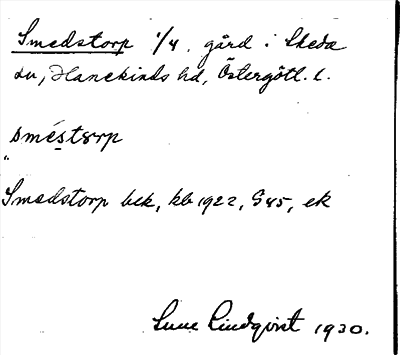 Smedstorp 1/4. gård i Skeda
sn, Hanekinds hd, Östergötl. l.
smés̱tɤrp
"
Smedstorp bek, kb 1922, G 45, ek
Sune Lindqvist 1930.